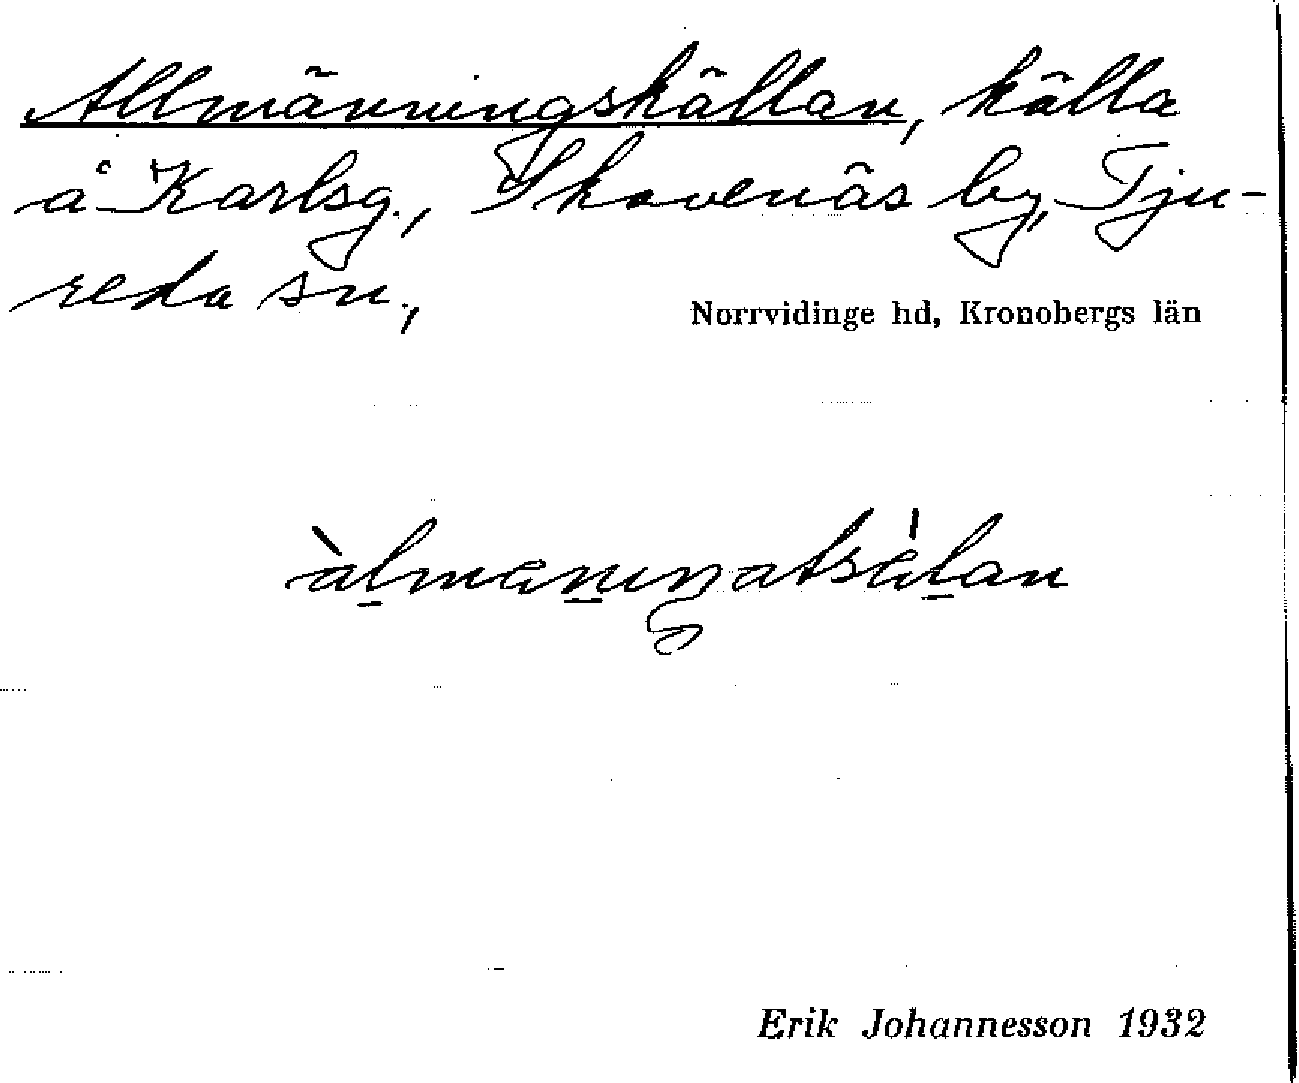 Allmänningskällan, källa
å Karlsg., Skovenäs by, Tju-
reda sn.,
Norrvidinge hd, Kronobergs län
Erik Johannesson 1932